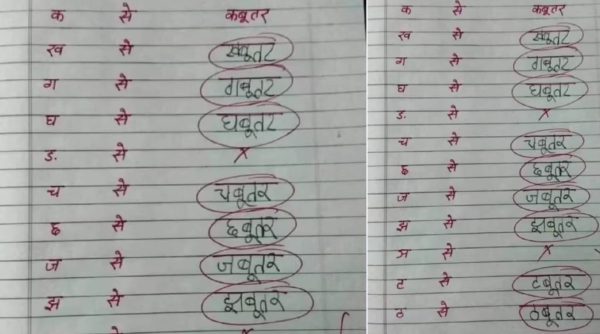 क से कबूतर
ख से खबूतर
ग से गबूतर
घ से घबूतर
ङ से ×
च से चबूतर
छ से छबूतर
ज से जबूतर
झ से झबूतर
क से कबूतर
ख से खबूतर
ग से गबूतर
घ से घबूतर
ङ से ×
च से चबूतर
छ से छबूतर
ज से जबूतर
झ से झबूतर
ञ से ×
ट से टबूतर
ठ से ठबूतर